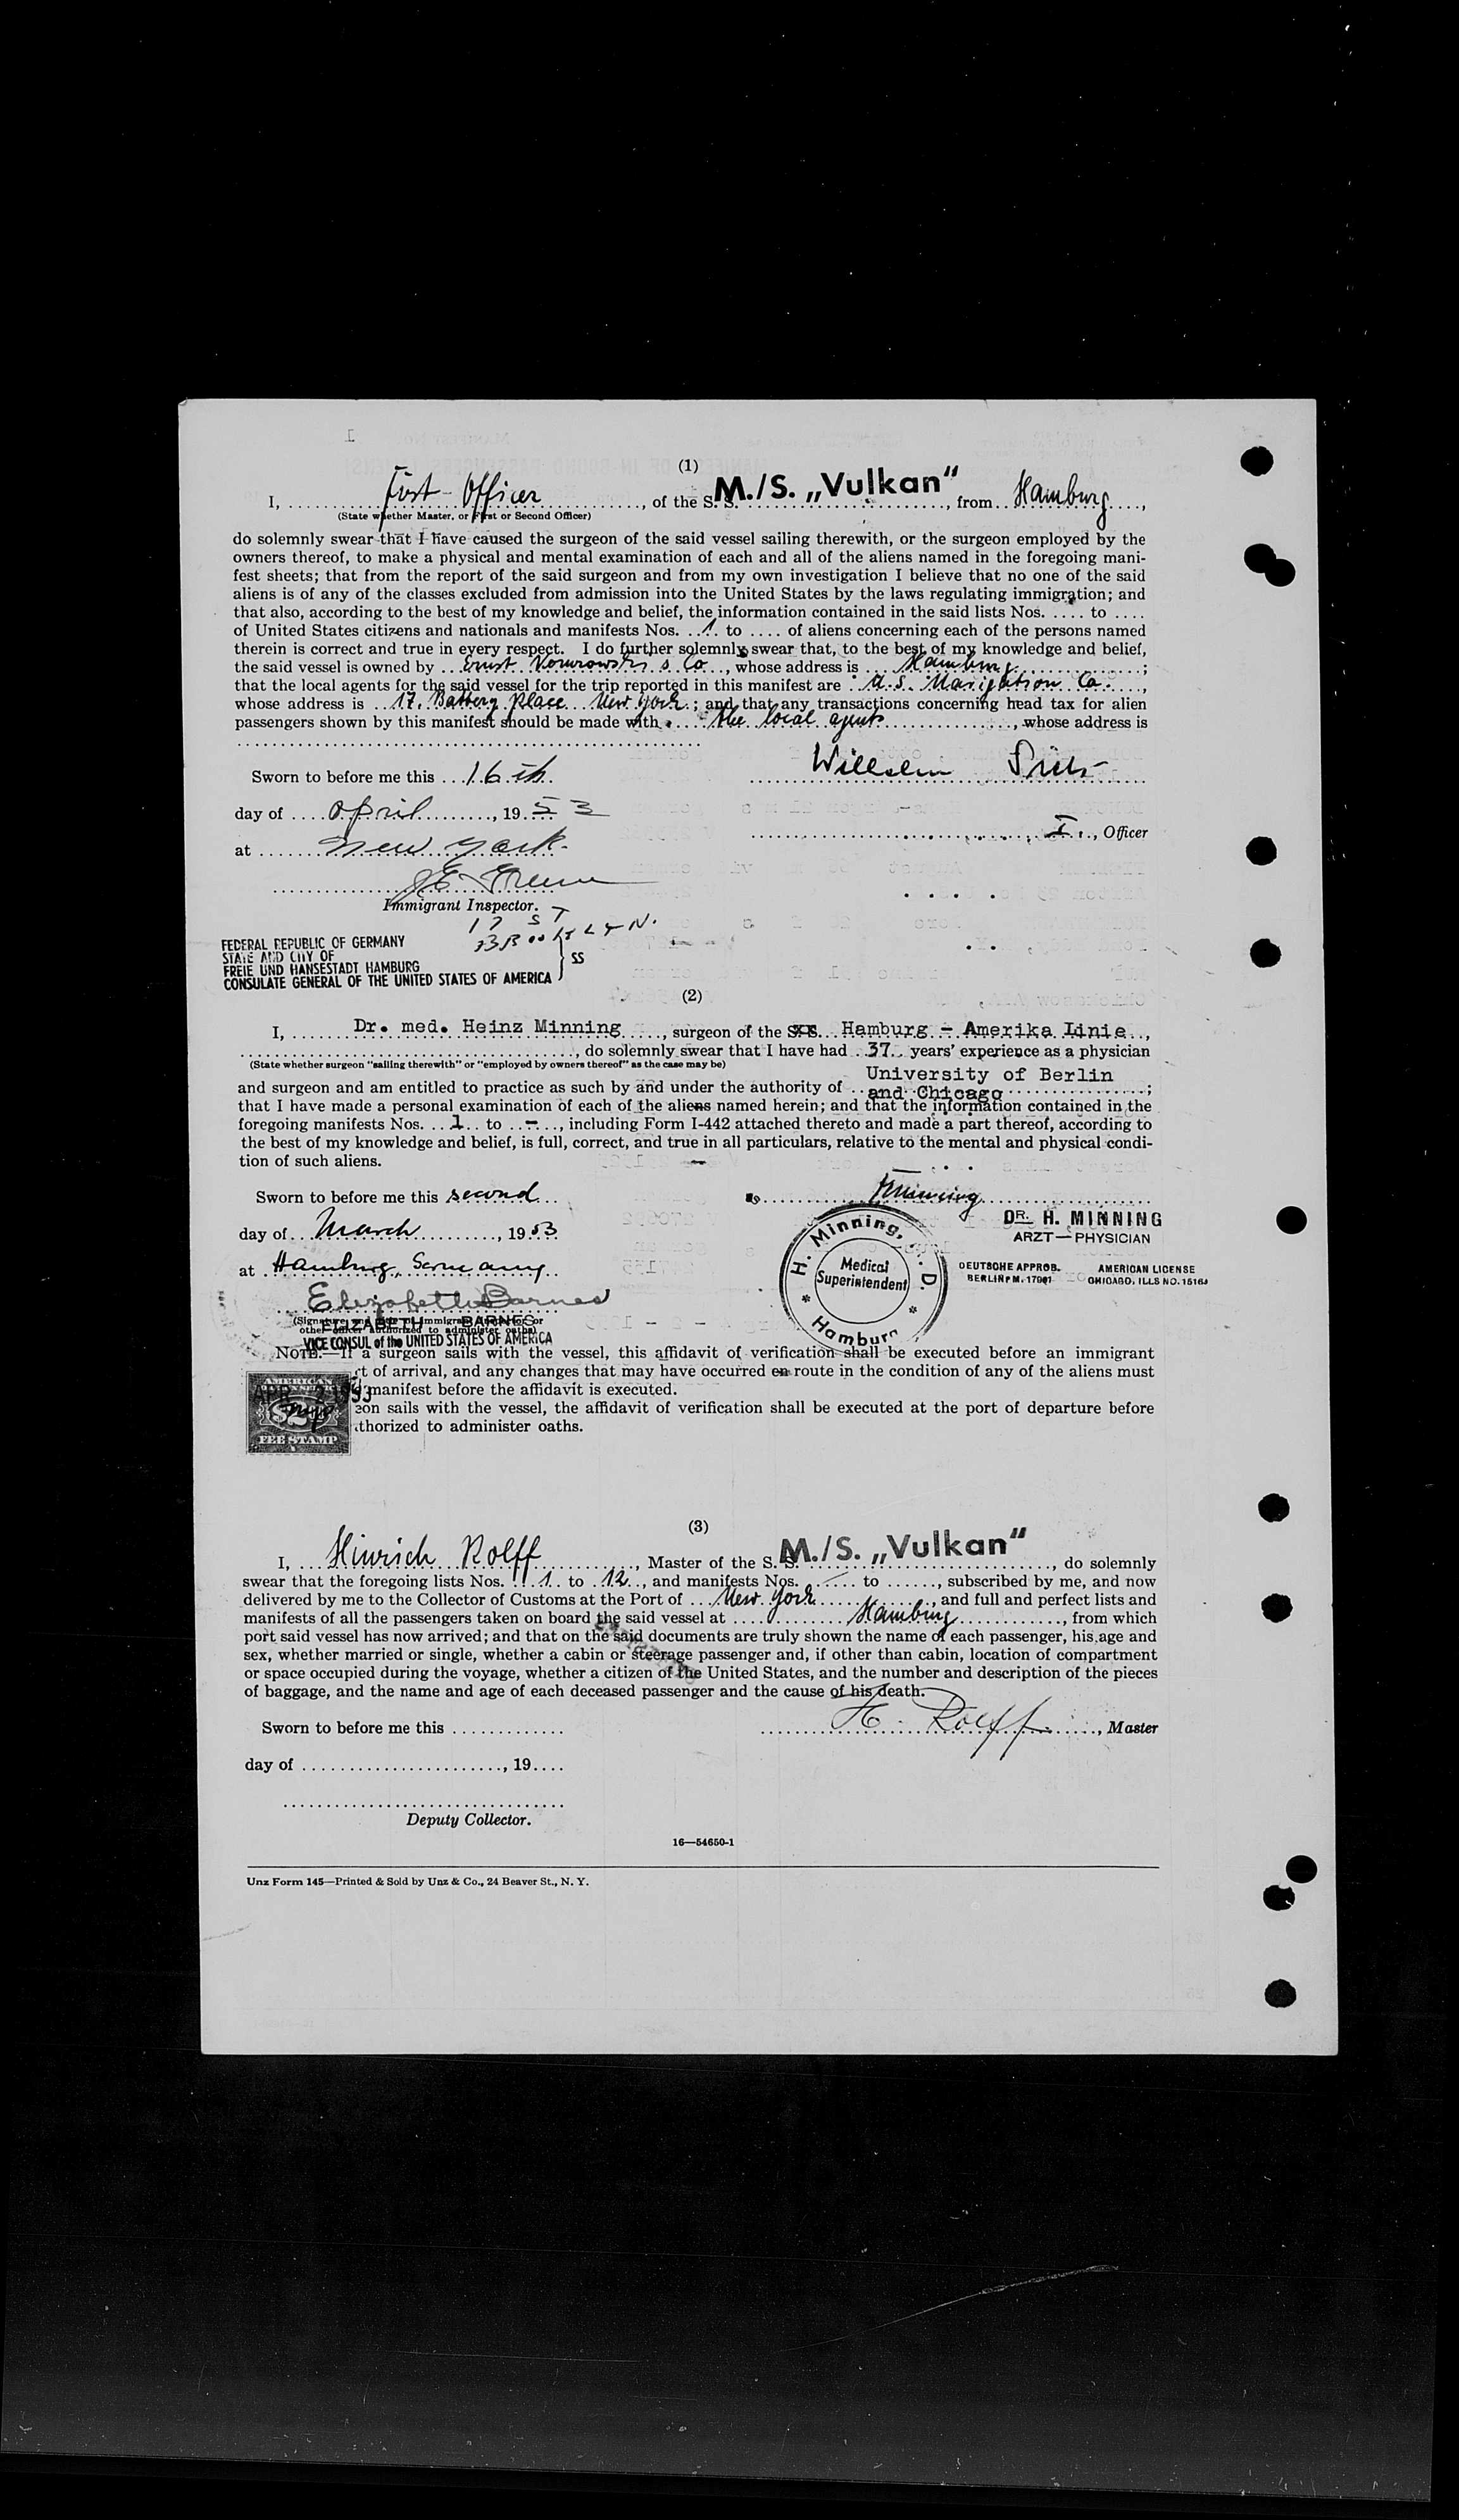 (1)
I, First-Officer, of the S. S. M./S. „Vulkan“, from Hamburg,
(State whether Master, or First or Second Officer)
do solemnly swear that I have caused the surgeon of the said vessel sailing therewith, or the surgeon employed by the
owners thereof, to make a physical and mental examination of each and all of the aliens named in the foregoing mani-
fest sheets; that from the report of the said surgeon and from my own investigation I believe that no one of the said
aliens is of any of the classes excluded from admission into the United States by the laws regulating immigration; and
that also, according to the best of my knowledge and belief, the information contained in the said lists Nos. ..... to ....
of United States citizens and nationals and manifests Nos. ..1. to .... of aliens concerning each of the persons named
therein is correct and true in every respect. I do further solemnly swear that, to the best of my knowledge and belief,
the said vessel is owned by Ernst & Co, whose address is Hamburg;
that the local agents for the said vessel for the trip reported in this manifest are U.S. Navigation Co.,
whose address is 17, Battery Place New York; and that any transactions concerning head tax for alien
passengers shown by this manifest should be made with the local agents, whose address is
Sworn to before me this 16th Wilhelm
day of April, 1953
I., Officer
at New York.
Immigrant Inspector.
17 ST
BROOKLYN.
FEDERAL REPUBLIC OF GERMANY
STATE AND CITY OF
FREIE UND HANSESTADT HAMBURG
CONSULATE GENERAL OF THE UNITED STATES OF AMERICA } SS
(2)
I, Dr. med. Heinz Minning, surgeon of the S.S. Hamburg - Amerika Linie,
, do solemnly swear that I have had 37 years' experience as a physician
(State whether surgeon "sailing therewith" or "employed by owners thereof" as the case may be)
University of Berlin
and surgeon and am entitled to practice as such by and under the authority of and Chicago;
that I have made a personal examination of each of the aliens named herein; and that the information contained in the
foregoing manifests Nos. ..1.. to ..-.., including Form I-442 attached thereto and made a part thereof, according to
the best of my knowledge and belief, is full, correct, and true in all particulars, relative to the mental and physical condi-
tion of such aliens.
Sworn to before me this second Minning
DR. H. MINNING
ARZT — PHYSICIAN
day of March, 1953
H. Minning, M. D.
Medical
Superintendent
* Hamburg *
DEUTSCHE APPROB. AMERICAN LICENSE
at Hamburg, Germany
Elizabeth Barnes
(Signature and title of immigrant inspector or
other officer authorized to administer oaths)
ELIZABETH BARNES
VICE CONSUL of the UNITED STATES OF AMERICA
NOTE.—If a surgeon sails with the vessel, this affidavit of verification shall be executed before an immigrant
t of arrival, and any changes that may have occurred en route in the condition of any of the aliens must
manifest before the affidavit is executed.
eon sails with the vessel, the affidavit of verification shall be executed at the port of departure before
thorized to administer oaths.
AMERICAN
APR 2 1953
$2
FEE STAMP
(3)
I, Hinrich Rolff, Master of the S. S. M./S. „Vulkan“, do solemnly
swear that the foregoing lists Nos. 1 to 12, and manifests Nos. ...... to ......, subscribed by me, and now
delivered by me to the Collector of Customs at the Port of New York, and full and perfect lists and
manifests of all the passengers taken on board the said vessel at Hamburg, from which
port said vessel has now arrived; and that on the said documents are truly shown the name of each passenger, his age and
sex, whether married or single, whether a cabin or steerage passenger and, if other than cabin, location of compartment
or space occupied during the voyage, whether a citizen of the United States, and the number and description of the pieces
of baggage, and the name and age of each deceased passenger and the cause of his death.
Sworn to before me this ............. H. Rolff, Master
day of ......................., 19....
Deputy Collector.
16—54650-1
Unz Form 145—Printed & Sold by Unz & Co., 24 Beaver St., N. Y.